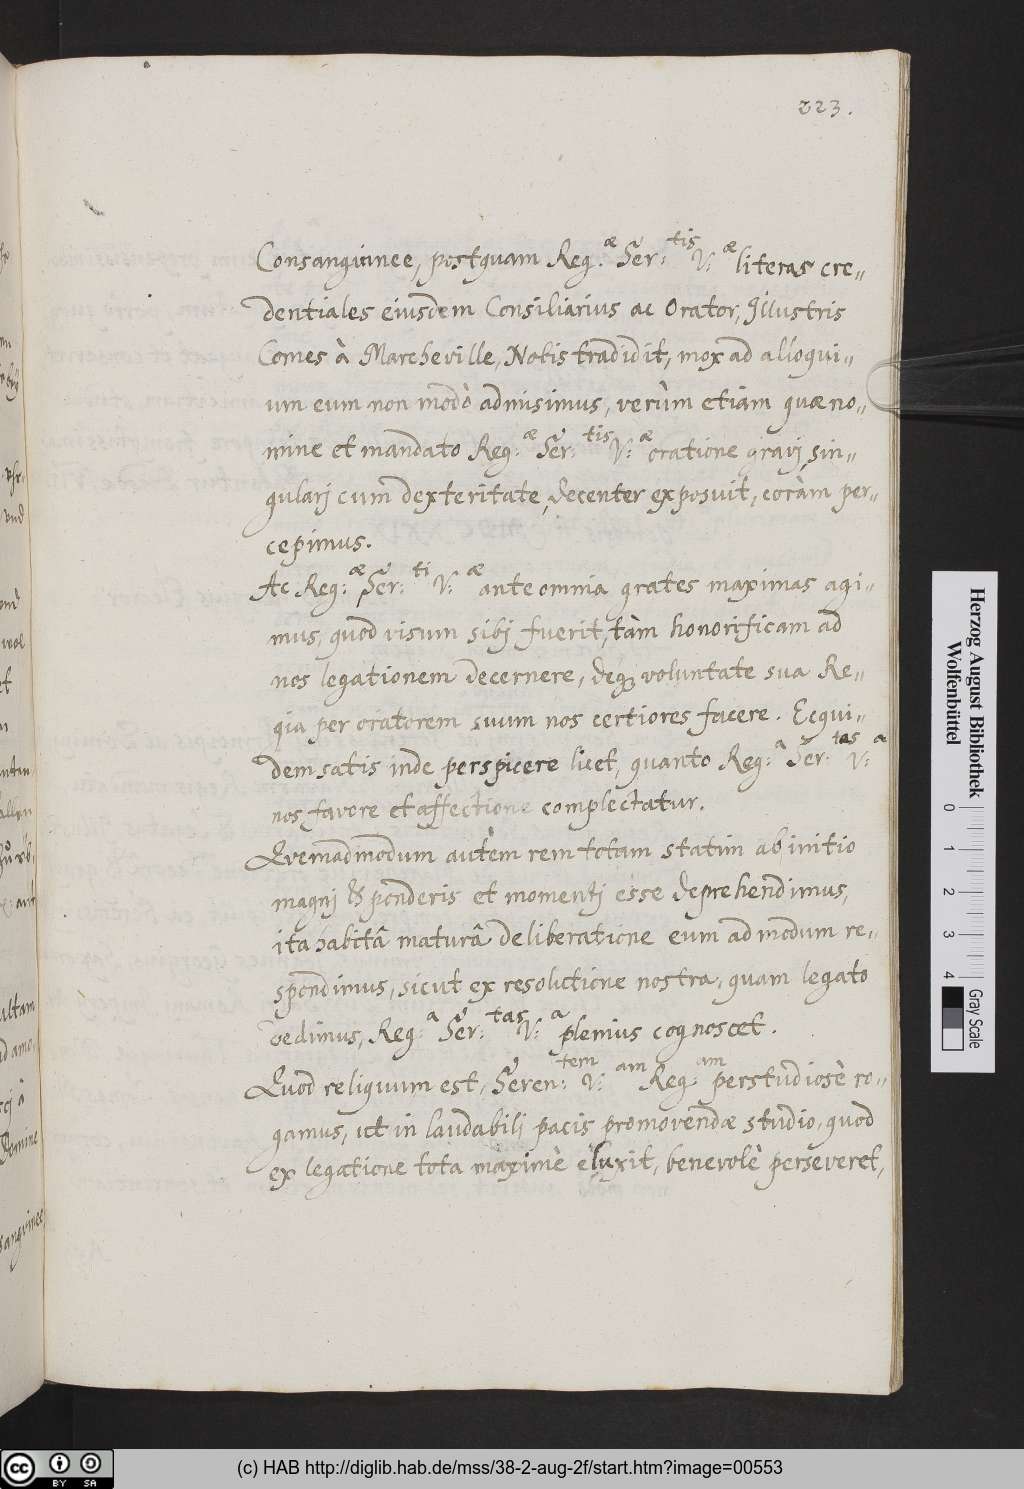 223.
Consanguinee, postquam Reg:æ Ser:tis V:æ literas cre„
dentiales eiusdem Consiliarius ac Orator, Illustris
Comes à Marcheville, Nobis tradidit, mox ad alloqui„
um eum non modò admisimus, verùm etiam quæ no„
mine et mandato Reg:æ Ser:tis V:æ oratione gravj, sin„
gularj cum dexteritate, decenter exposuit, coràm per„
cepimus.
Ac Reg:æ Ser:ti V:æ ante omnia grates maximas agi„
mus, quod visum sibj fuerit, tàm honorificam ad
nos legationem decernere, deq; voluntate sua Re„
gia per oratorem suum nos certiores facere. Ecqui„
dem satis inde perspicere licet, quanto Reg:a Ser:tas V:a
nos favore et affectione complectatur.
Quemadmodum autèm rem totam statim ab initio
magnj ponderis et momentj esse deprehendimus,
ita habitâ maturâ deliberatione eum admodum re„
spondimus, sicut ex resolutione nostra, quam legato
dedimus, Reg:a Ser:tas V:a plenius cognoscet.
Quod reliquum est, Seren:tem V:am Reg:am perstudiosè ro„
gamus, ut in laudabili pacis promovendæ studio, quod
ex legatione tota maximè eluxit, benevolè perseveret,
Herzog August Bibliothek
Wolfenbüttel
0 1 2 3 4
Gray Scale
cc BY SA
(c) HAB http://diglib.hab.de/mss/38-2-aug-2f/start.htm?image=00553